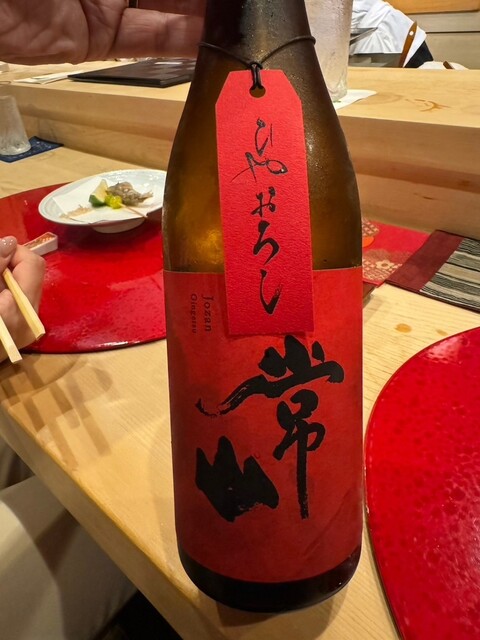 ひやおろし
Jozan
常山